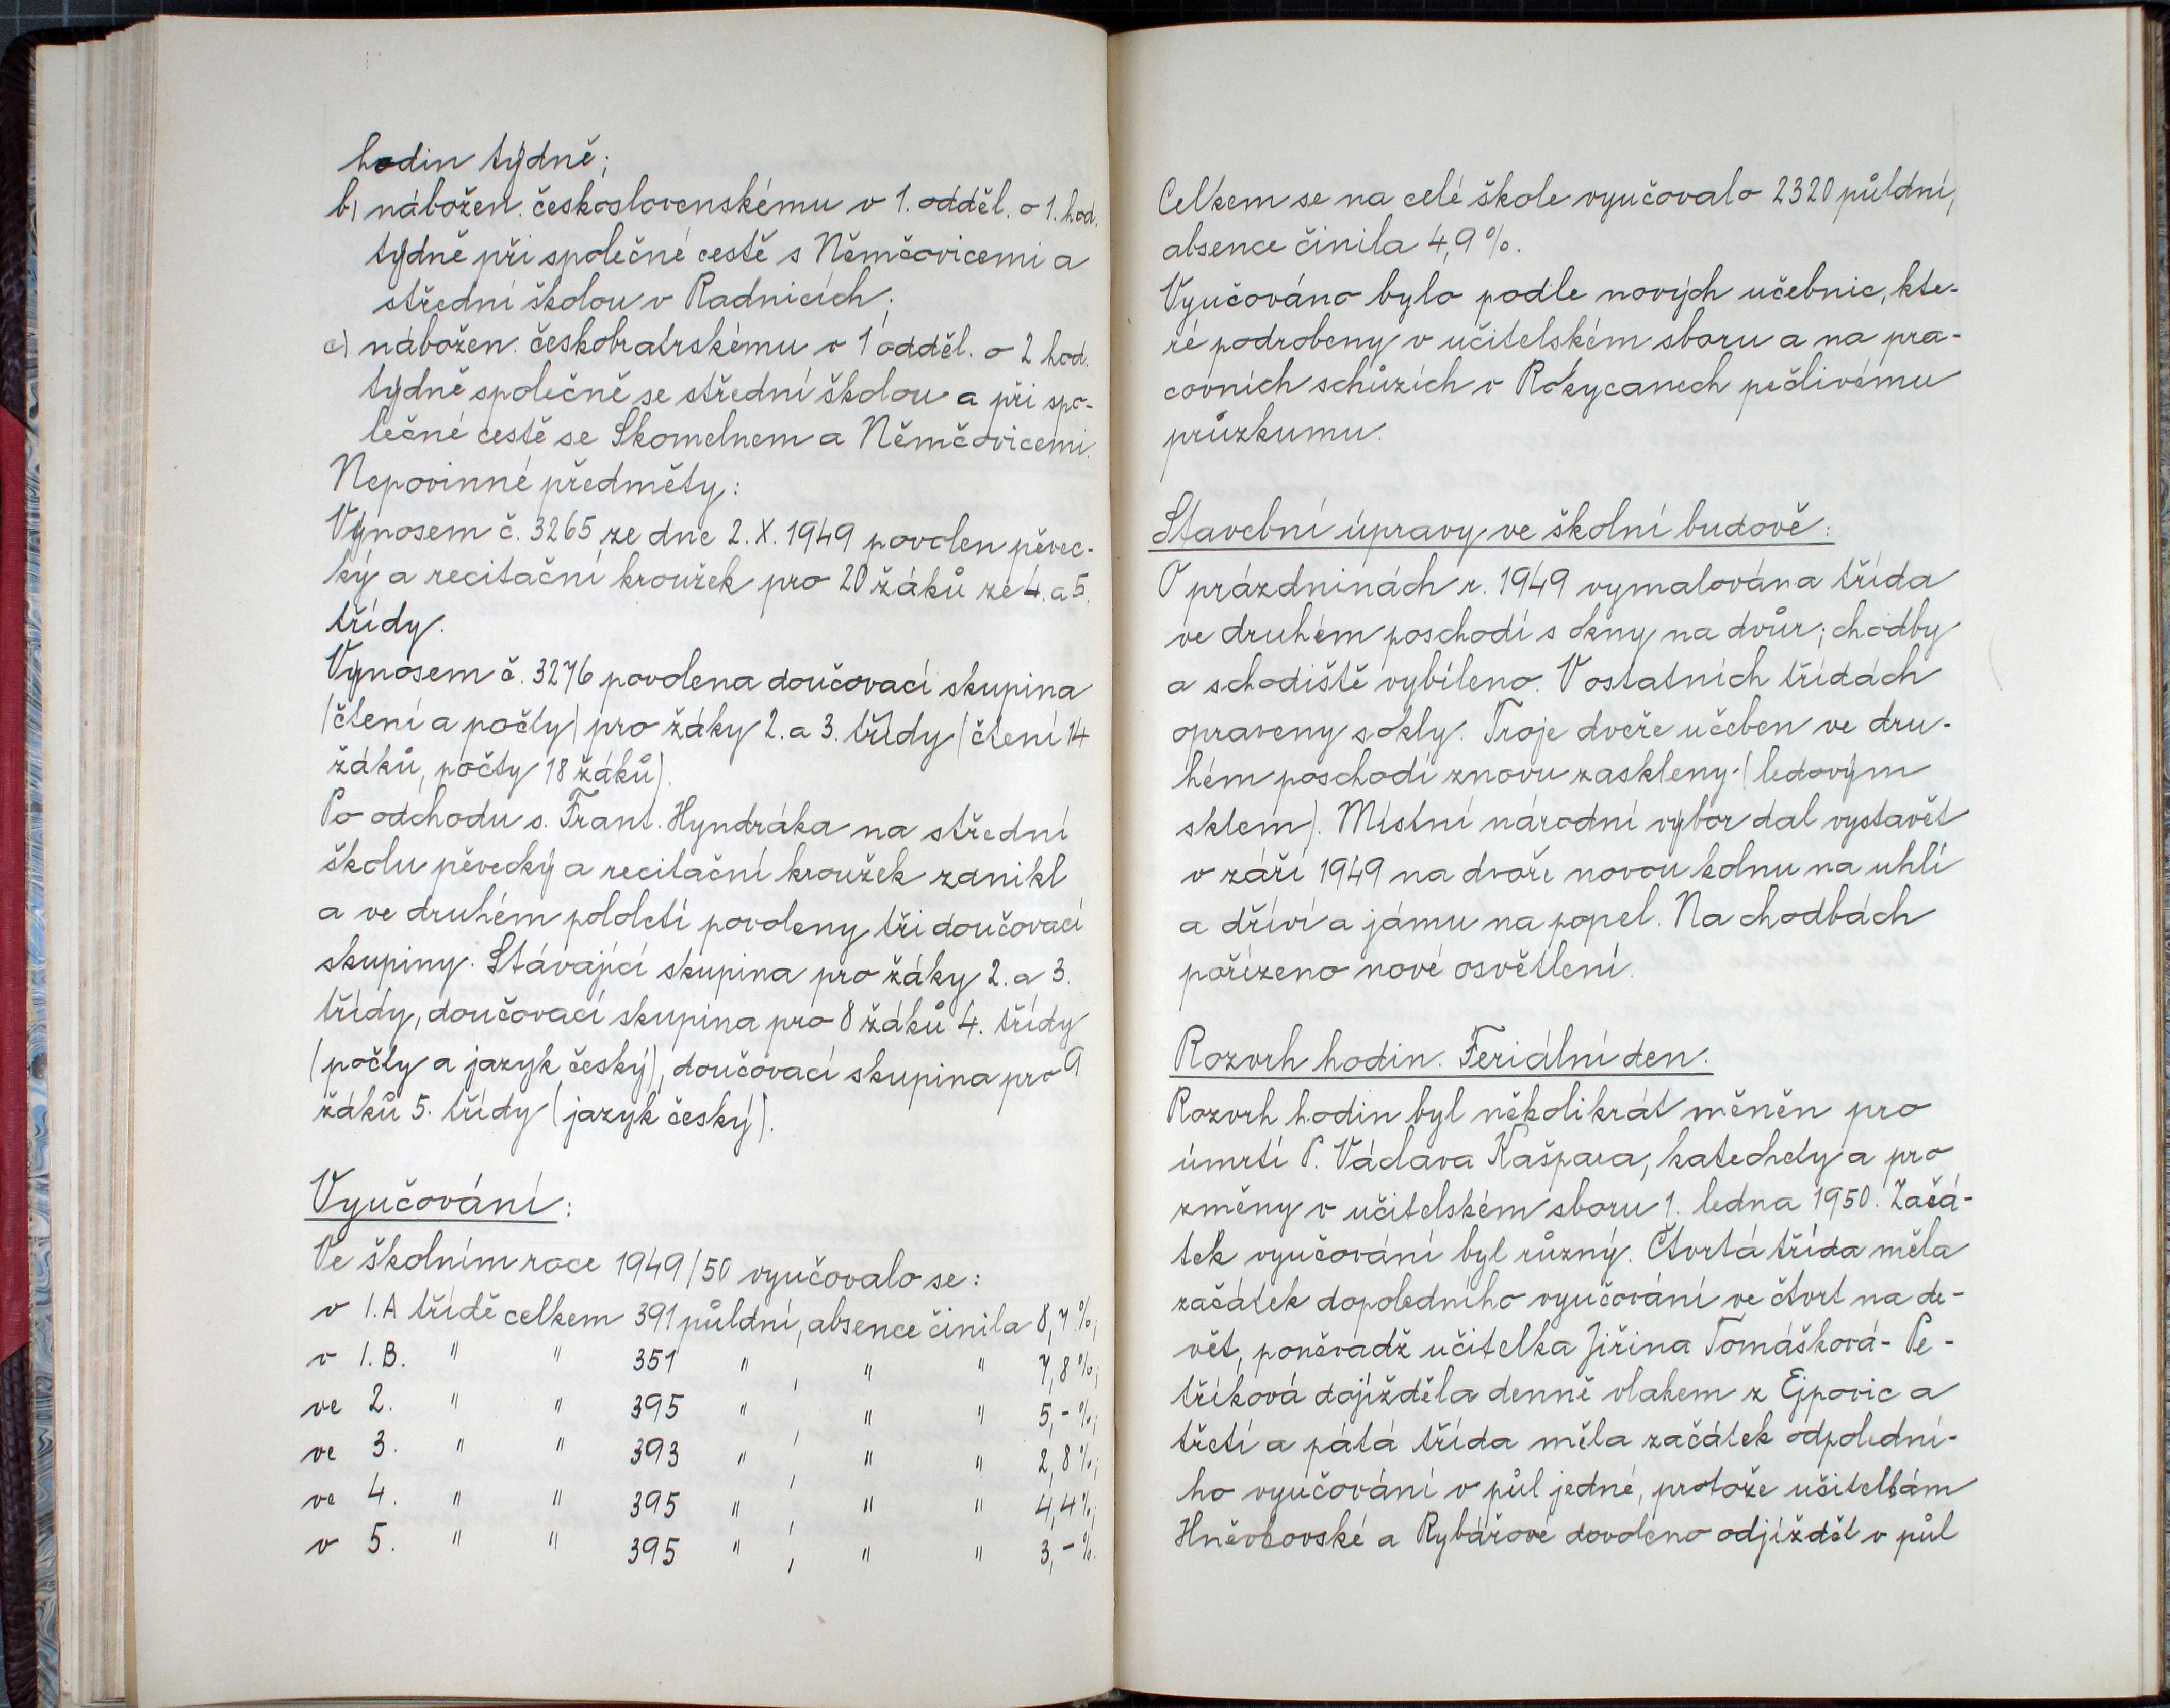 hodin týdně;
b) nábožen. československému v 1. odděl. o 1. hod.
týdně při společné cestě s Němčovicemi a
střední školou v Radnicích;
c) nábožen. českobratrskému v 1 odděl. o 2 hod.
týdně společně se střední školou a při spo-
lečné cestě se Skomelnem a Němčovicemi.
Nepovinné předměty:
Výnosem č. 3265 ze dne 2. X. 1949 povolen pěvec-
ký a recitační kroužek pro 20 žáků ze 4. a 5.
třídy.
Výnosem č. 3276 povolena doučovací skupina
(čtení a počty) pro žáky 2. a 3. třídy (čtení 14
žáků, počty 18 žáků).
Po odchodu s. Frant. Hyndráka na střední
školu pěvecký a recitační kroužek zanikl
a ve druhém pololetí povoleny tři doučovací
skupiny. Stávající skupina pro žáky 2. a 3.
třídy, doučovací skupina pro 8 žáků 4. třídy
(počty a jazyk český), doučovací skupina pro 9
žáků 5. třídy (jazyk český).
Vyučování:
Ve školním roce 1949/50 vyučovalo se:
v 1.A třídě celkem 391 půldní, absence činila 8,7%;
v 1.B. " " 351 " , " " 7,8%;
ve 2. " " 395 " , " " 5,-%;
ve 3. " " 393 " , " " 2,8%;
ve 4. " " 395 " , " " 4,4%;
v 5. " " 395 " , " " 3,-%.
Celkem se na celé škole vyučovalo 2320 půldní,
absence činila 4,9%.
Vyučováno bylo podle nových učebnic, kte-
ré podrobeny v učitelském sboru a na pra-
covních schůzích v Rokycanech pečlivému
průzkumu.
Stavební úpravy ve školní budově:
O prázdninách r. 1949 vymalována třída
ve druhém poschodí s okny na dvůr; chodby
a schodiště vybíleno. V ostatních třídách
opraveny sokly. Troje dveře učeben ve dru-
hém poschodí znovu zaskleny (ledovým
sklem). Místní národní výbor dal vystavět
v září 1949 na dvoře novou kolnu na uhlí
a dříví a jámu na popel. Na chodbách
pořízeno nové osvětlení.
Rozvrh hodin. Feriální den.
Rozvrh hodin byl několikrát měněn pro
úmrtí P. Václava Kašpara, katechety a pro
změny v učitelském sboru 1. ledna 1950. Začá-
tek vyučování byl různý. Čtvrtá třída měla
začátek dopoledního vyučování ve čtvrt na de-
vět, poněvadž učitelka Jiřina Tomášková-Pe-
tříková dojížděla denně vlakem z Ejpovic a
třetí a pátá třída měla začátek odpolední-
ho vyučování v půl jedné, protože učitelkám
Hněvkovské a Rybářové dovoleno odjíždět v půl